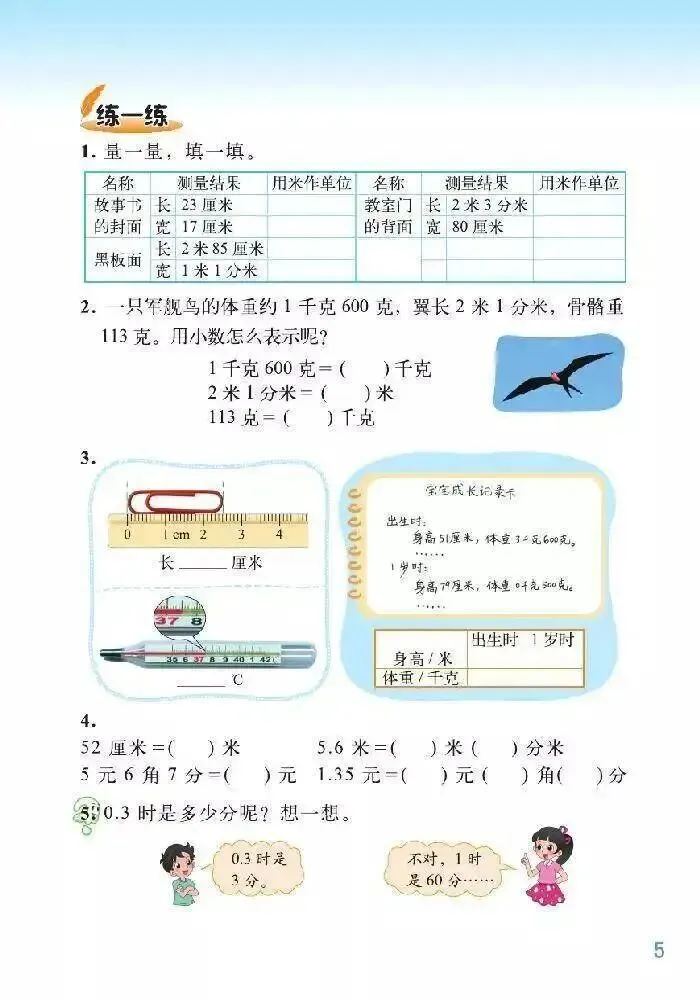 练一练
1. 量一量，填一填。
名称 测量结果 用米作单位 名称 测量结果 用米作单位
故事书的封面 长 23 厘米 教室门的背面 长 2 米 3 分米
宽 17 厘米 宽 80 厘米
黑板面 长 2 米 85 厘米
宽 1 米 1 分米
2. 一只军舰鸟的体重约 1 千克 600 克，翼长 2 米 1 分米，骨骼重
113 克。用小数怎么表示呢？
1 千克 600 克 = (　　) 千克
2 米 1 分米 = (　　) 米
113 克 = (　　) 千克
3.
0 1 cm 2 3 4
长 ______ 厘米
37 8
35 6 37 8 9 40 1 42
______ ℃
宝宝成长记录卡
出生时：
身高 51 厘米，体重 3 千克 600 克。
……
1 岁时：
身高 79 厘米，体重
……
出生时 1 岁时
身高 / 米
体重 / 千克
4.
52 厘米 = (　　) 米 5.6 米 = (　　) 米 (　　) 分米
5 元 6 角 7 分 = (　　) 元 1.35 元 = (　　) 元 (　　) 角 (　　) 分
5. 0.3 时是多少分呢？想一想。
0.3 时是
3 分。
不对，1 时
是 60 分……
5